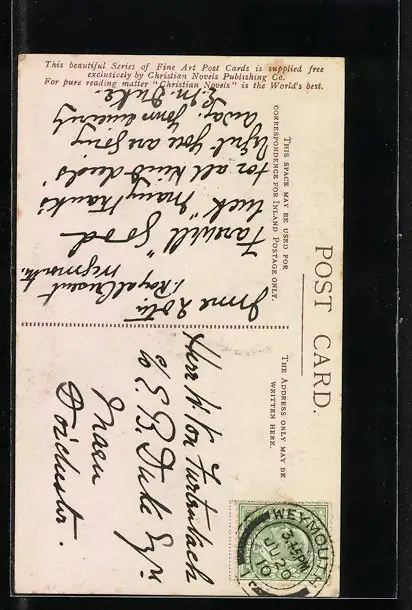 This beautiful Series of Fine Art Post Cards is supplied free
exclusively by Christian Novels Publishing Co.
For pure reading matter "Christian Novels" is the World's best.
POST CARD.
THIS SPACE MAY BE USED FOR
CORRESPONDENCE FOR INLAND POSTAGE ONLY.
THE ADDRESS ONLY MAY BE
WRITTEN HERE.
June 20th
1. Royal Crescent
Weymouth.
Farewell "good
luck" many thanks
for all kind deeds.
you are going
away, Yours sincerely
M. Duke.
Herr W. von Furtenbach
c/o E. B. Duke Esqr
Maen
Dorchester.
WEYMOUTH
3.45PM
JU 20
10